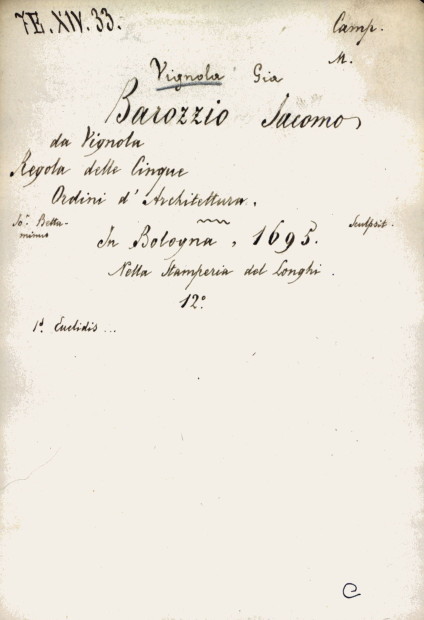 7E.XIV.33.
Camp.
M.
Vignola Gia
Barozzio Jacomo
da Vignola
Regola delle Cinque
Ordini d'Architettura.
Jo: Betta-
minus
Sculpsit.
In Bologna, 1695.
Nella Stamperia del Longhi.
12°
1ª Euclidis...
C